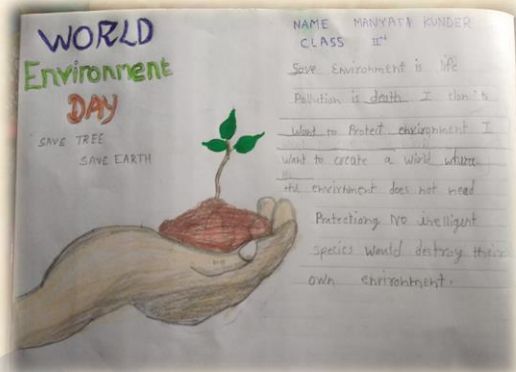 WORLD
Environment
DAY
SAVE TREE
SAVE EARTH
NAME MANYATA KUNDER
CLASS IInd
Save Environment is life
Pollution is death I don't
want to Protect environment I
want to create a world where
the envirnment does not need
Protectiong No intelligent
species would destroy their
own environment.